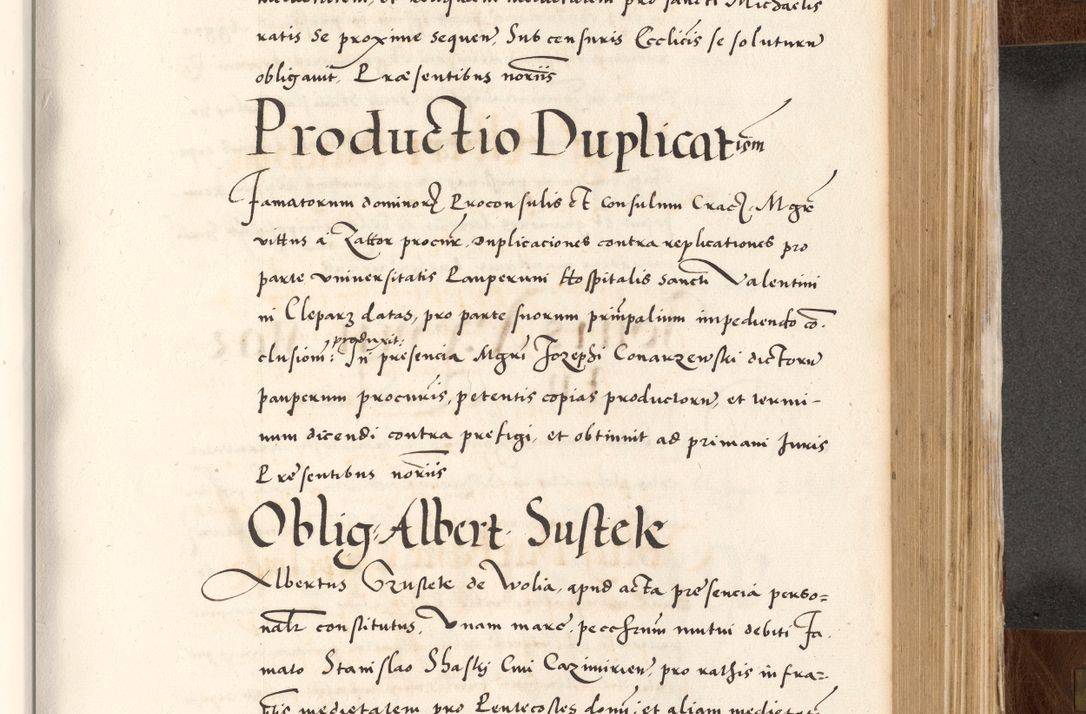 medietatem, et reliquam medietatem pro sancti Michaelis
ratis se proxime sequen, Sub censuris Ecclicis se soluturu
obligavit, Præsentibus noriis
Productio Duplicatiom
Famatorum dominor Proconsulis et Consulum Crac. Mgr
vittus à Zattor procur, duplicaciones contra replicationes pro
parte universitatis Pauperum Hospitalis sancti Valentini
in Cleparz datas, pro parte suorum prinpalium impediendo co.
clusiom: produxit: In presencia Mgri Jozephi Conarzewski dictoru
pauperum procuris, petentis copias productoru, et termi-
num dicendi contra prefigi, et obtinuit ad primam Juris
Presentibus noriis
Oblig. Albert. Sustek
Albertus Grustek de Wolia, apud acta presencia perso=
nalr constitutus, Unam marc. pecchrum mutui debiti Fa.
mato Stanislao Shasky Civi Cazimirien, pro rathis infra=
medietatem pro Pentecostes domi, et aliam medietatem